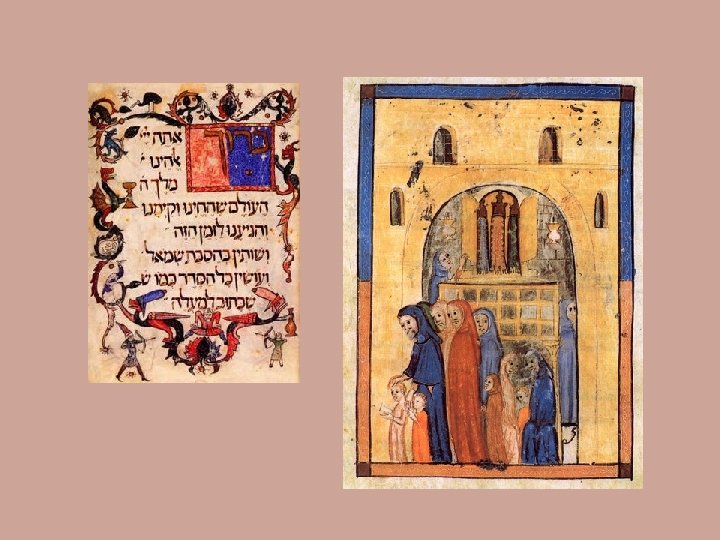 ברוך
אתה יי
אלהינו
מלך ה
העולם שהחיינו וקימנו
והגיענו לזמן הזה
ושותין בהסבת שמאל
ועושין כל הסדר כמו ש
שכתוב למעלה